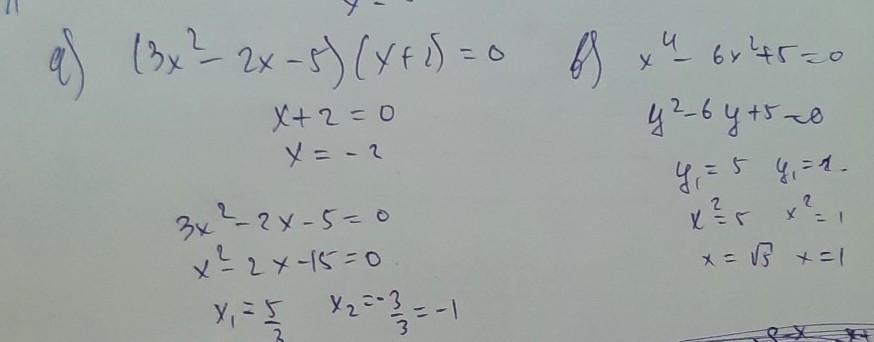 a) (3x² - 2x - 5)(x + 2) = 0
x + 2 = 0
x = -2
3x² - 2x - 5 = 0
x² - 2x - 15 = 0
x₁ = 5/3 x₂ = -3/3 = -1
б) x⁴ - 6x² + 5 = 0
y² - 6y + 5 = 0
y₁ = 5 y₁ = 1.
x² = 5 x² = 1
x = √5 x = 1